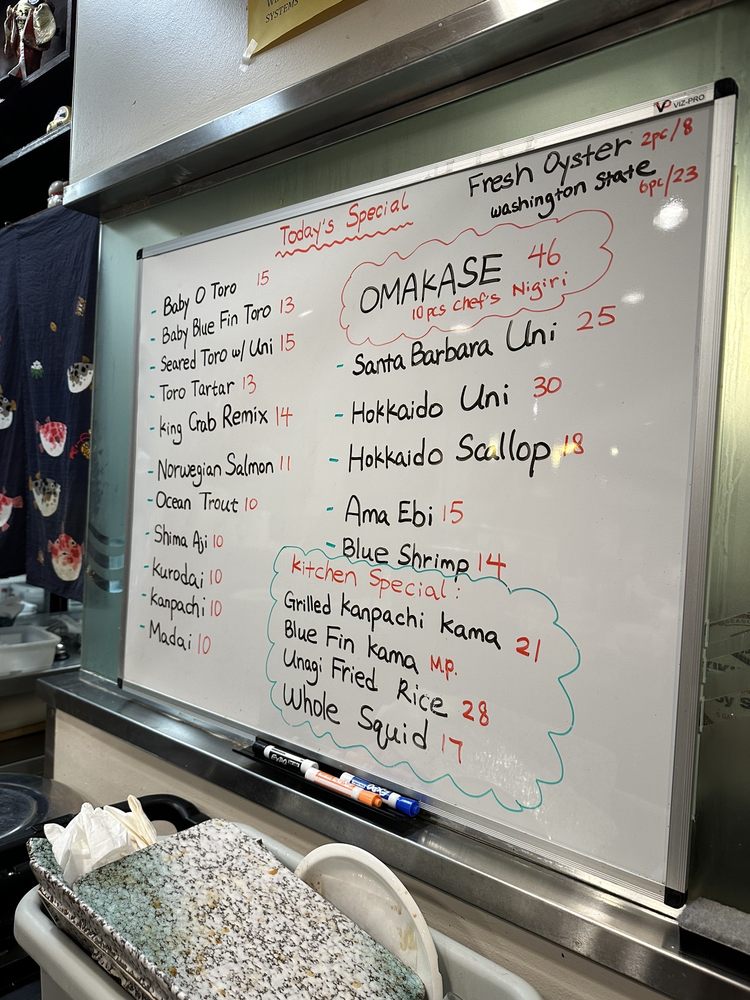 SYSTEMS
VIZ-PRO
Today's Special
Fresh Oyster 2pc/8
Washington State 6pc/23
- Baby O Toro 15
- Baby Blue Fin Toro 13
- Seared Toro w/ Uni 15
- Toro Tartar 13
- King Crab Remix 14
- Norwegian Salmon 11
- Ocean Trout 10
- Shima Aji 10
- Kurodai 10
- Kanpachi 10
- Madai 10
OMAKASE 46
10 pcs Chef's Nigiri
- Santa Barbara Uni 25
- Hokkaido Uni 30
- Hokkaido Scallop 18
- Ama Ebi 15
- Blue Shrimp 14
Kitchen Special:
Grilled Kanpachi Kama 21
Blue Fin Kama M.P.
Unagi Fried Rice 28
Whole Squid 17
EXPO